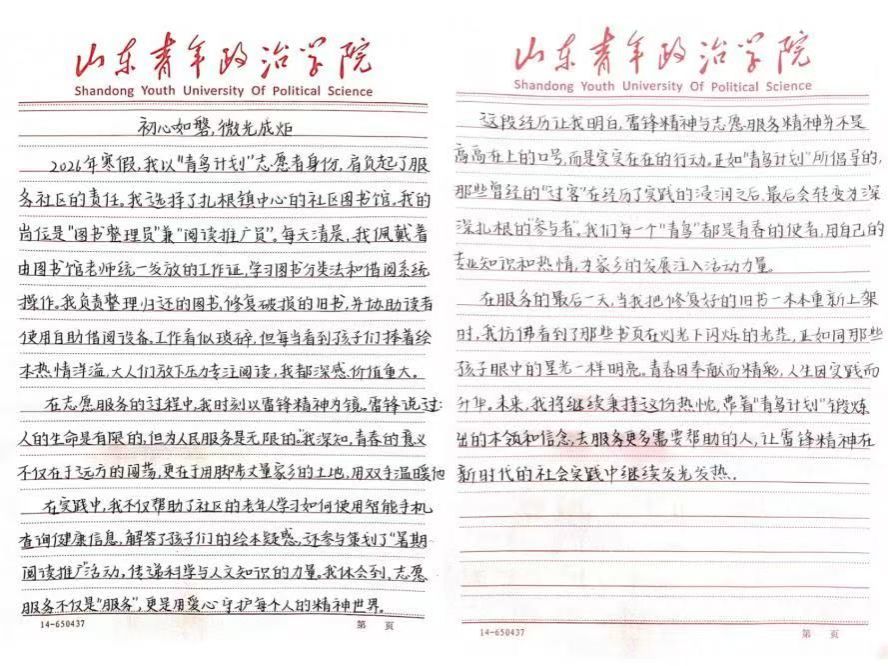 山东青年政治学院
Shandong Youth University Of Political Science
初心如磐,微光成炬
2026年寒假,我以"青鸟计划"志愿者身份,肩负起了服
务社区的责任。我选择了扎根镇中心的社区图书馆,我的
岗位是"图书整理员"兼"阅读推广员"。每天清晨,我佩戴着
由图书馆老师统一发放的工作证,学习图书分类法和借阅系统
操作。我负责整理归还的图书,修复破损的旧书,并协助读者
使用自助借阅设备。工作看似琐碎,但每当看到孩子们捧着绘
本热情洋溢,大人们放下压力专注阅读,我都深感价值重大。
在志愿服务的过程中,我时刻以雷锋精神为镜。雷锋说过:
人的生命是有限的,但为人民服务是无限的。"我深知,青春的意义
不仅在于远方的闯荡,更在于用脚步丈量家乡的土地,用双手温暖他
在实践中,我不仅帮助了社区的老年人学习如何使用智能手机
查询健康信息,解答了孩子们的绘本疑惑,还参与策划了"暑期
阅读推广"活动,传递科学与人文知识的力量。我体会到,志愿
服务不仅是"服务",更是用爱心守护每个人的精神世界。
14-650437
第 页
山东青年政治学院
Shandong Youth University Of Political Science
这段经历让我明白,雷锋精神与志愿服务精神并不是
高高在上的口号,而是实实在在的行动。正如"青鸟计划"所倡导的,
那些曾经的"过客"在经历了实践的浸润之后,最后会转变为深
深扎根的"参与者"。我们每一个"青鸟"都是青春的使者,用自己的
专业知识和热情,为家乡的发展注入活动力量。
在服务的最后一天,当我把修复好的旧书一本本重新上架
时,我仿佛看到了那些书页在灯光下闪烁的光芒,正如同那些
孩子眼中的星光一样明亮。青春因奉献而精彩,人生因实践而
升华。未来,我将继续秉持这份热忱,带着"青鸟计划"锻炼
出的本领和信念,去服务更多需要帮助的人,让雷锋精神在
新时代的社会实践中继续发光发热。
14-650437
第 页